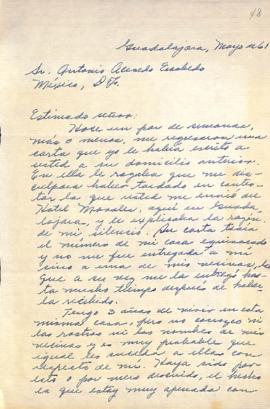 48
Guadalajara, Mayo de 61
Sr. Antonio Acevedo Escobedo
México, D. F.
Estimado señor:
Hace un par de semanas,
más o menos, me regresaron una
carta que yo le había escrito a
usted a su domicilio anterior.
En ella le rogaba que me dis-
culpara haber tardado en contes-
tar la que usted me envió al
Hotel Morales, aquí en Guada
lajara, y le explicaba la razón
de mi silencio. Su carta tenía
el número de mi casa equivocado
y no me fue entregada a mí
sino a una de mis vecinas,
que a su vez me la entregó has-
ta mucho tiempo después de haber
la recibido.
Tengo 3 años de vivir en esta
misma casa, pero no conozco ni
los rostros ni los nombres de mis
vecinas y es muy probable que
igual les suceda a ellas con
respecto de mí. Haya sido por
esto o por mero descuido, el
la que estoy muy apenada con